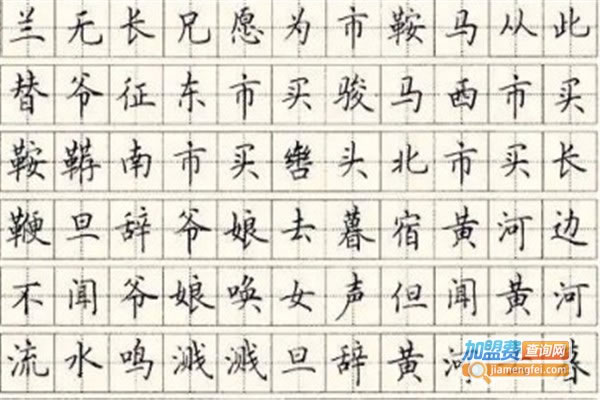 兰无长兄愿为市鞍马从此
替爷征东市买骏马西市买
鞍鞯南市买辔头北市买长
鞭旦辞爷娘去暮宿黄河边
不闻爷娘唤女声但闻黄河
流水鸣溅溅旦辞黄河暮
加盟费查询网
jiamengfei.com